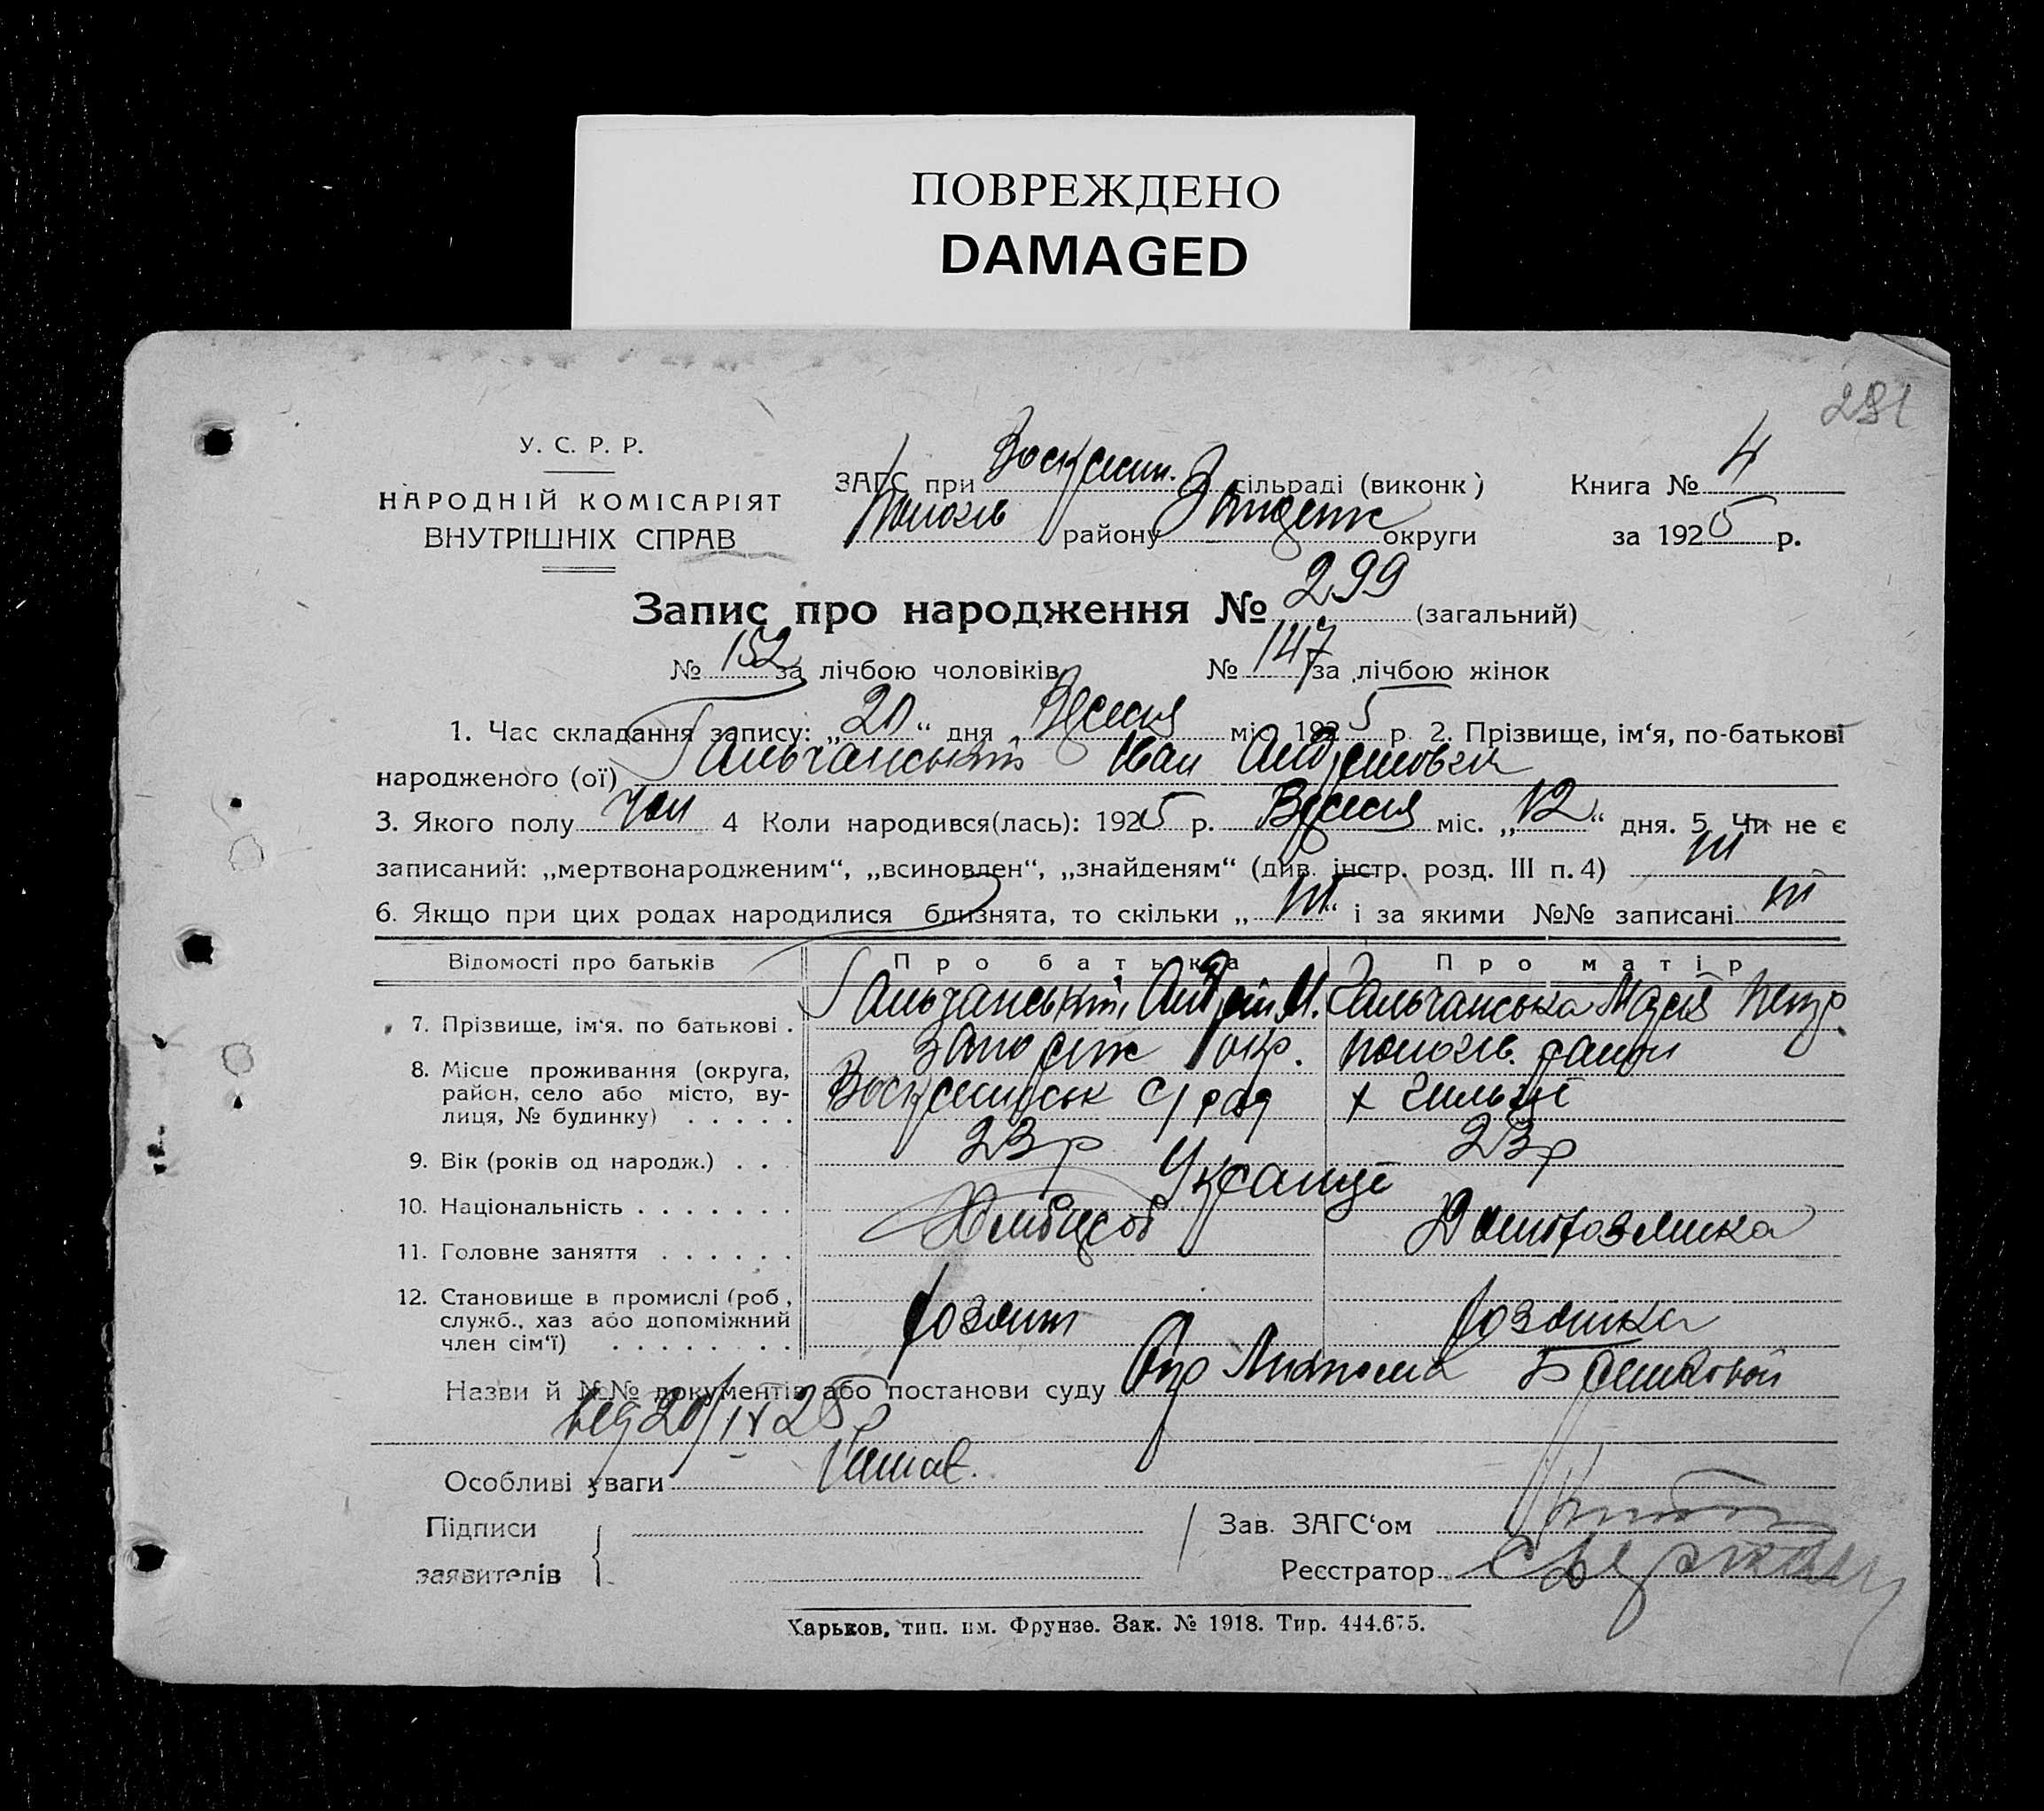 ПОВРЕЖДЕНО
DAMAGED
281
У. С. Р. Р.
НАРОДНІЙ КОМІСАРІЯТ
ВНУТРІШНІХ СПРАВ
ЗАГС при Воскресен. сільраді (виконк)
Пологів району Запоріж округи
Книга № 4
за 1925 р.
Запис про народження № 299 (загальний)
№ 152 за лічбою чоловіків № 147 за лічбою жінок
1. Час складання запису: „20“ дня Вересня міс 1925 р. 2. Прізвище, ім‘я, по-батькові
народженого (ої) Гальчанський Іван Андреєвич
3. Якого полу чол 4 Коли народився(лась): 1925 р. Вересня міс. „12“ дня. 5. Чи не є
записаний: „мертвонародженим“, „всиновлен“, „знайденям“ (див. інстр. розд. III п. 4) ні
6. Якщо при цих родах народилися близнята, то скільки „ні“ і за якими №№ записані ні
Відомості про батьків Про батька Про матір
7. Прізвище, ім‘я. по батькові . Гальчанський Андрій И. Гальчанська Марія Петр
8. Місце проживання (округа, район, село або місто, вулиця, № будинку) . . . . . Запоріж окр. Пологів. район
Воскресенськ с/рад х
9. Вік (років од народж.) . . . 23 р 23 р
10. Національність . . . . . . . Українці
11. Головне заняття . . . . . . Хлібороб Домохозяйка
12. Становище в промислі (роб, служб., хаз або допоміжний член сім‘ї) . . . . . . . . хозяин хозяйка
Назви й №№ документів або постанови суду
20/IX 25 р
Особливі уваги
Підписи
заявителів
Зав. ЗАГС‘ом
Реєстратор
Харьков, тип. им. Фрунзе. Зак. № 1918. Тир. 444.675.